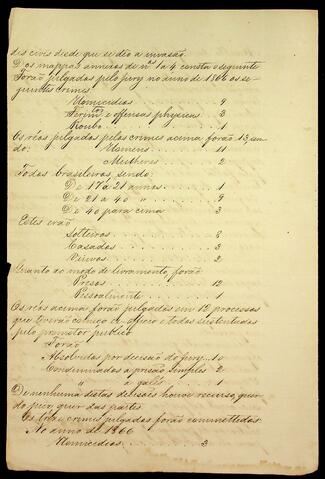 des civis desde que se deo a invasão.
Dos mappas annexos de nºs 1 a 4 consta o seguinte
Forão julgados pelo jury no anno de 1866 os se-
guintes crimes
Homicidios . . . 9
Ferimtos e offensas physicas . . 3
Roubo . . . 1
Os réos julgados pelos crimes acima forão 13, sen-
do: Homens . . . . 11
Mulheres . . . 2
Todos brasileiros, sendo:
De 17 a 21 annos . . . 1
De 21 a 40 " . . . 9
De 40 para cima . . . 3
Estes erão
Solteiros . . . 8
Casados . . . 3
Viuvos . . . 2
Quanto ao modo de livramento, forão
Presos . . . 12
Pessoalmente . . 1
Os réos acima forão julgados em 12 processos
que tiverão começo e todos sustentados
pelo promotor publico
Forão
Absolvidos por decisão do jury . . 10
Condemnados a prisão simples . . 2
" a galés . . 1
De nenhuma destas decisões houve recurso, quer
do juiz, quer das partes.
Os treze crimes julgados forão commettidos:
No anno de 1866
Homicidios . . . 3